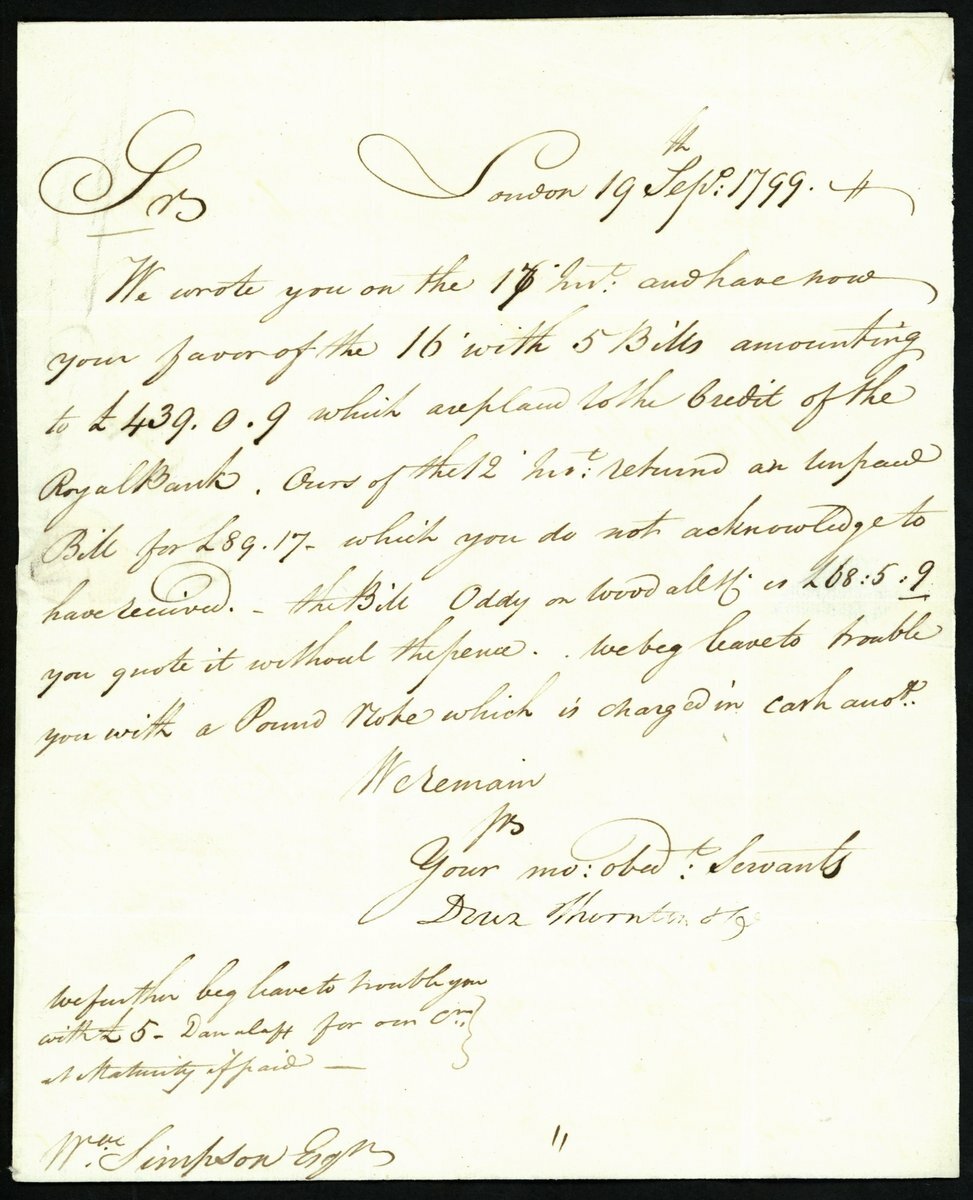 Srs London 19th Sepr: 1799.
We wrote you on the 17 Inst: and have now
your favor of the 16 with 5 Bills amounting
to £439.0.9 which are placed to the Credit of the
Royal Bank. Ours of the 12 Inst: returned an unpaid
Bill for £89.17- which you do not acknowledge to
have received. - the Bill Oddy on Woodall & is £68:5:9
you quote it without the pence. . we beg leave to trouble
you with a Pound Note which is charged in cash accot.
We Remain
Srs
Your mo: obedt: Servants
Down Thornton & Co
we further beg leave to trouble you
with £5- for our Cr.
at Maturity if paid -
Wm: Simpson Esqr